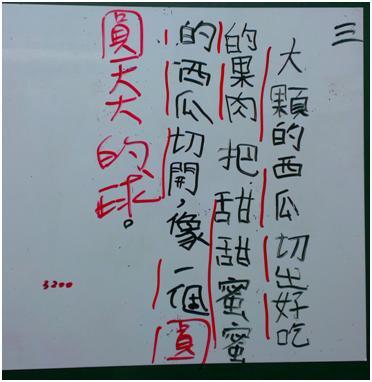 三
大顆的西瓜切出好吃
的果肉把甜甜蜜蜜
的西瓜切開,像一個圓
圓大大的球。
3200